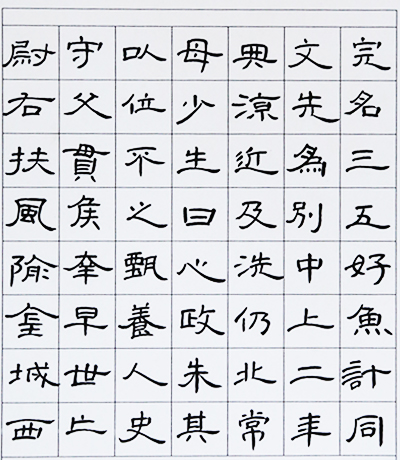 完名三五好魚計同
文先為別中上二年
典涼近及洗仍北常
母少生曰心政朱其
以位不之甄養人史
守父貫侯早世
尉右扶風隃城西